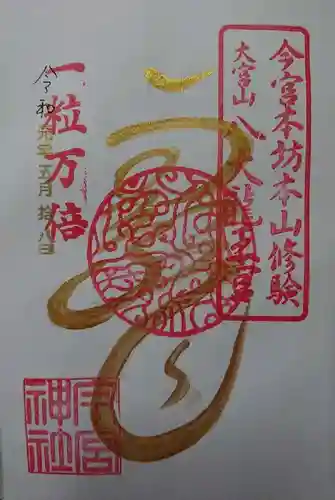 今宮本坊本山修験
大宮山 八大龍王宮
一粒万倍
令和元年五月拾八日
今宮
神社